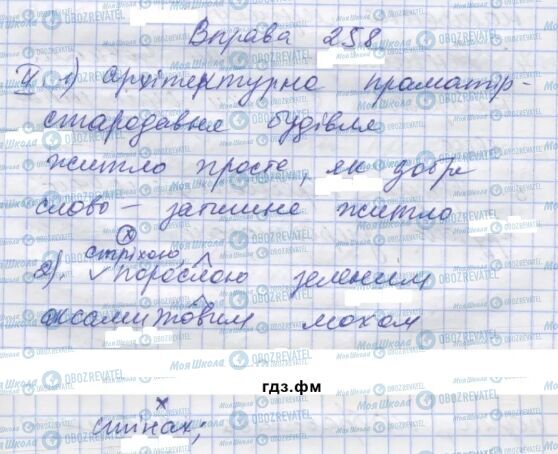 Вправа 258
ІІ 1) архітектурна праматір -
стародавня будівля
житло просте, як добре
слово – затишне житло
х
стріхою,
2). порослою зеленим
оксамитовим мохом
гдз.фм
х
стінах;